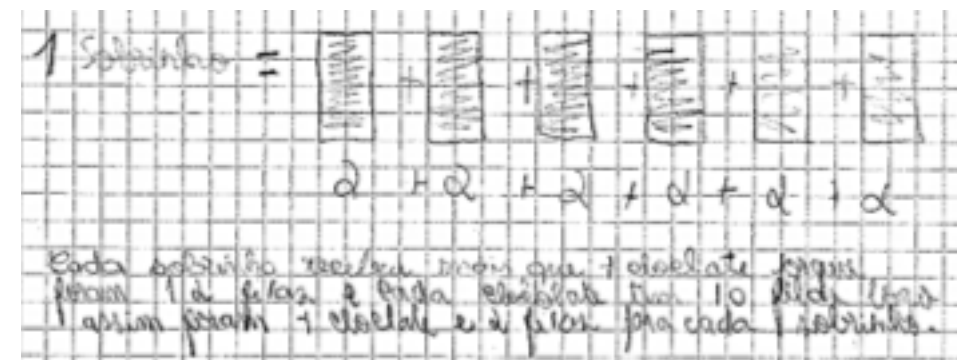 1 Sobrinho =
+ + + + +
2 + 2 + 2 + 2 + 2 + 2
Cada sobrinho recebeu mais que 1 choclate porque
foram 12 filas e cada choclate tem 10
assim foram 1 choclate e 2 filas pra cada 1 sobrinho.